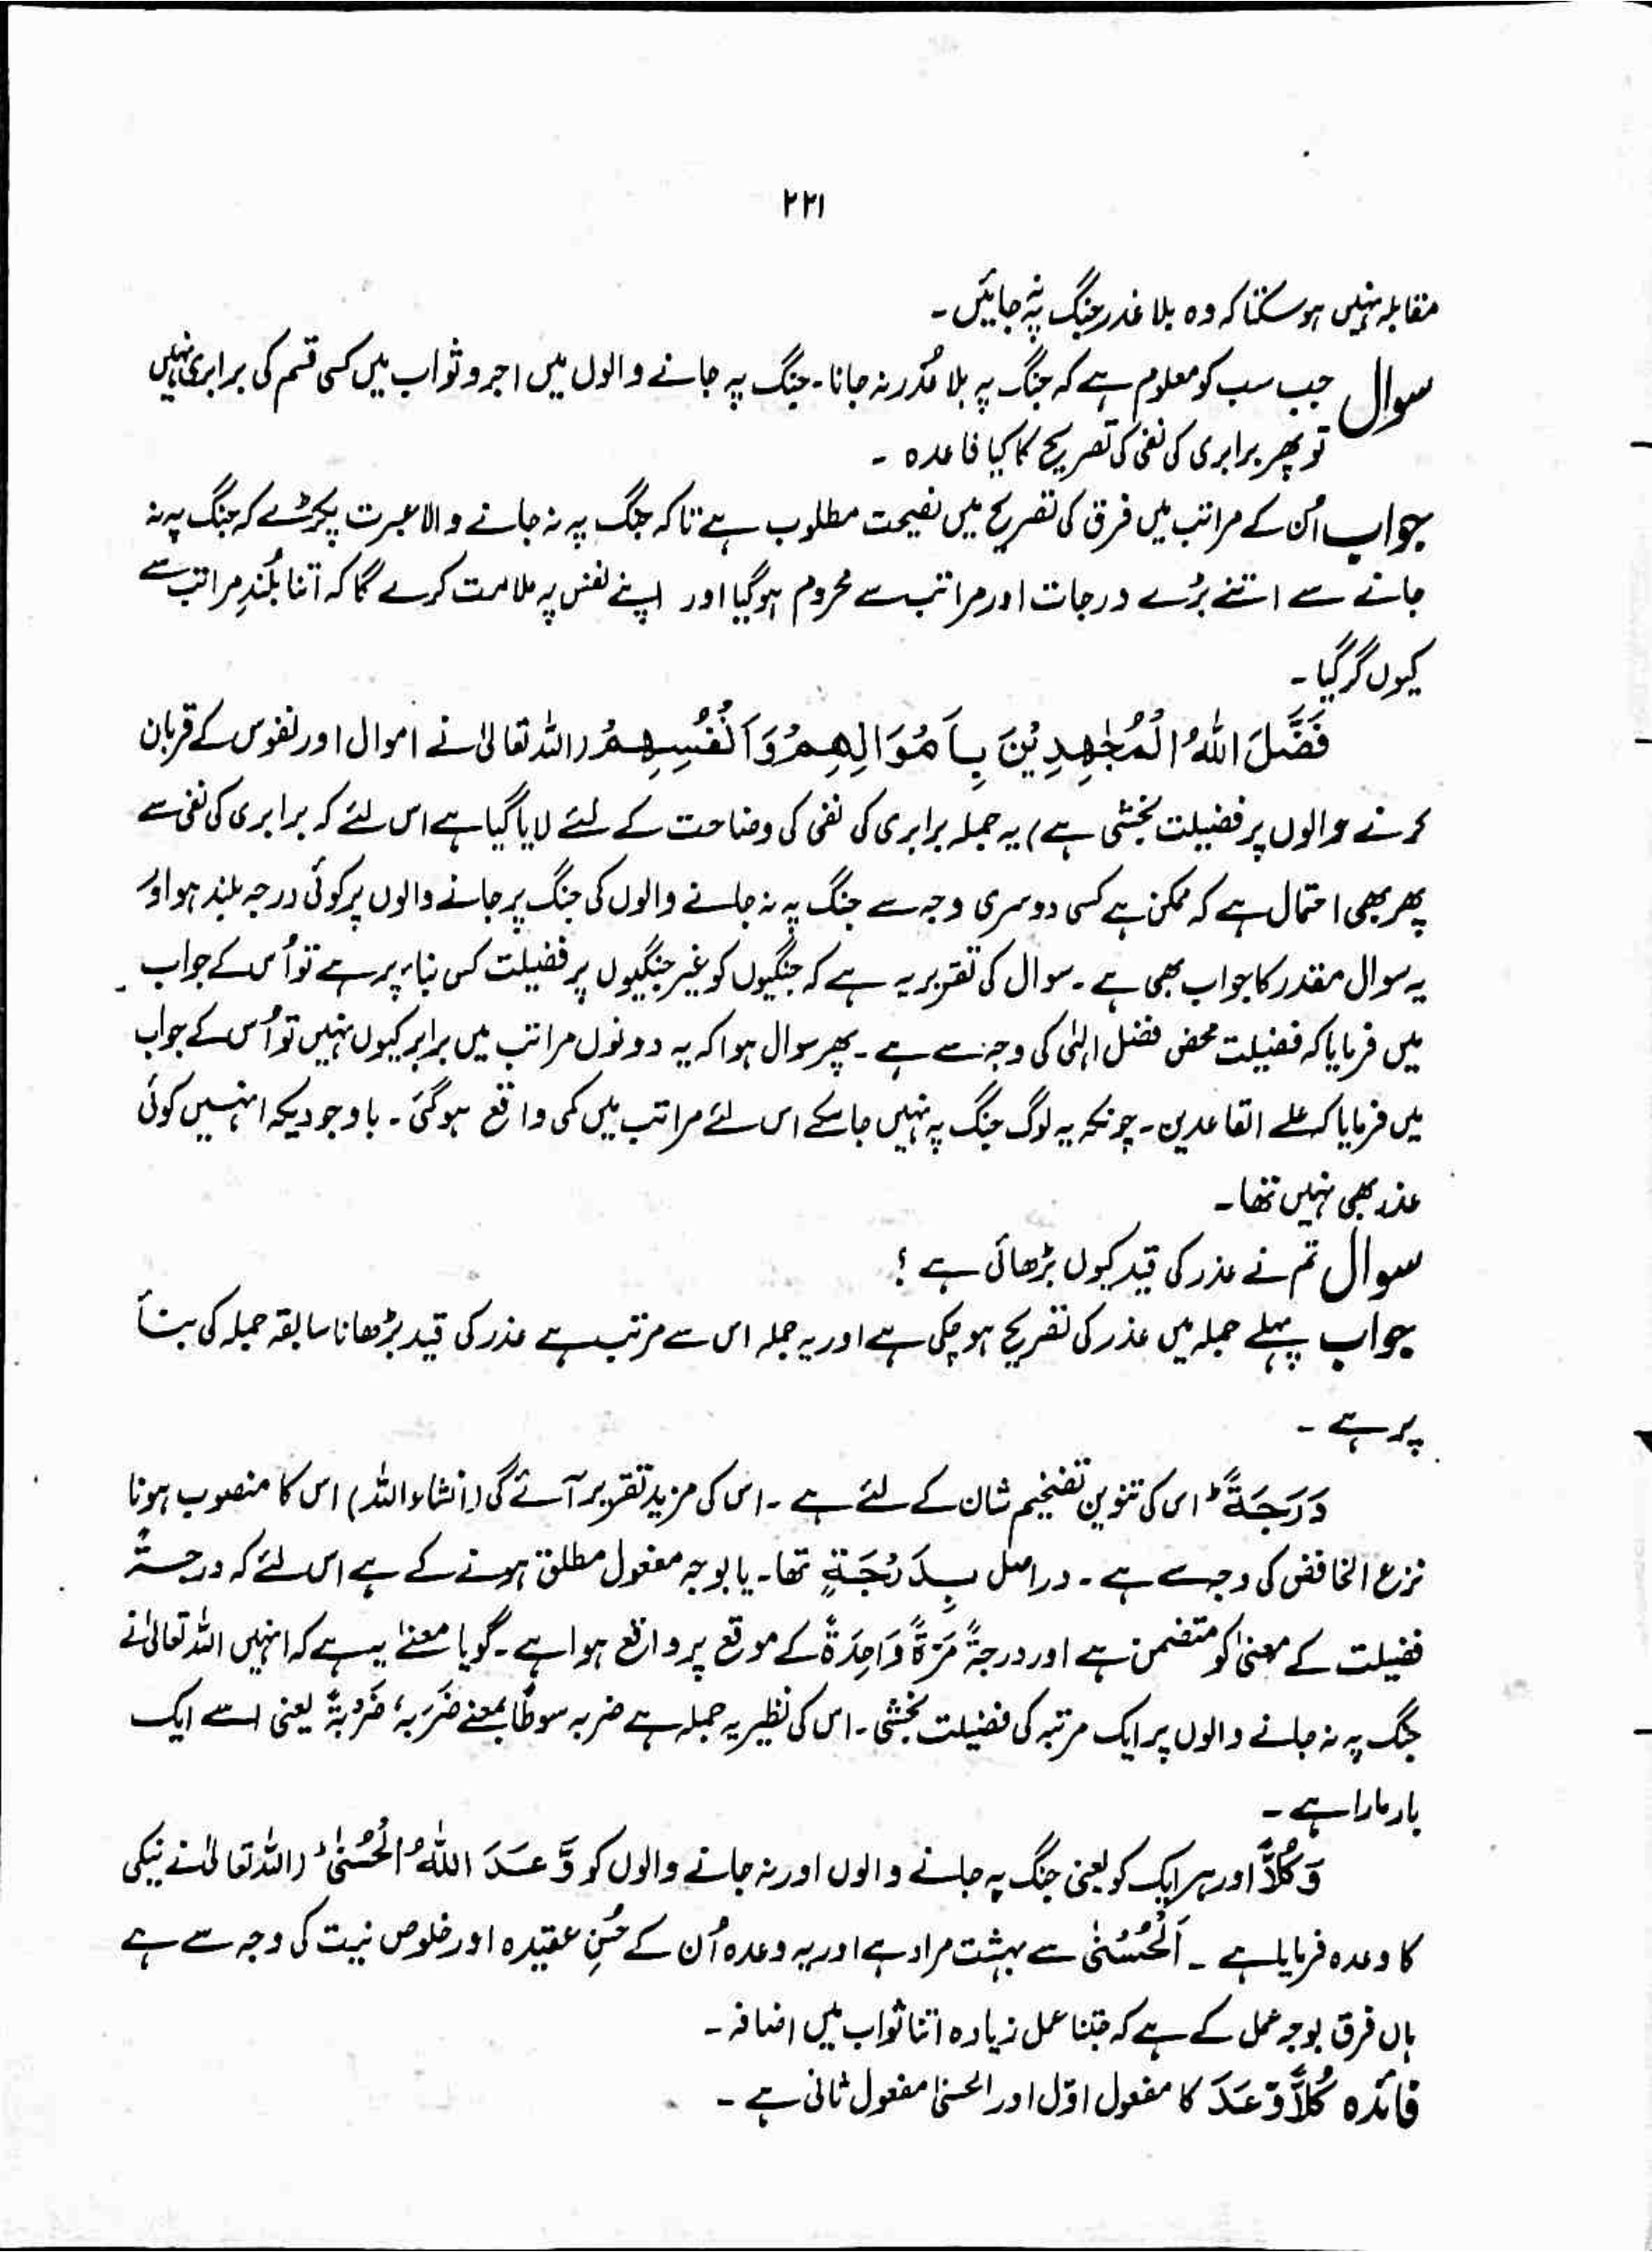 ۲۲۱
مقابلہ نہیں ہو سکتا کہ وہ بلا عذر جنگ پہ نہ جائیں۔
سوال جب سب کو معلوم ہے کہ جنگ پہ بلا عُذر نہ جانا۔ جنگ پہ جانے والوں میں اجر و ثواب میں کسی قسم کی برابری نہیں
تو پھر برابری کی نفی کی تصریح کا کیا فائدہ ۔
جواب اُن کے مراتب میں فرق کی تصریح میں نصیحت مطلوب ہے تاکہ جنگ پہ نہ جانے والا عبرت پکڑے کہ جنگ پہ نہ
جانے سے اتنے بڑے درجات اور مراتب سے محروم ہو گیا اور اپنے نفس پہ ملامت کرے گا کہ اتنا بلُند مراتب سے
کیوں گر گیا ۔
فَضَّلَ اللّٰهُ الْمُجٰهِدِيْنَ بِاَمْوَالِهِمْ وَاَنْفُسِهِمْ (اللّٰہ تعالیٰ نے اموال اور نفوس کے قربان
کرنے والوں پر فضیلت بخشی ہے) یہ جملہ برابری کی نفی کی وضاحت کے لئے لایا گیا ہے اس لئے کہ برابری کی نفی سے
پھر بھی احتمال ہے کہ ممکن ہے کسی دوسری وجہ سے جنگ پہ نہ جانے والوں کی جنگ پر جانے والوں پر کوئی درجہ بلند ہو اور
یہ سوال مقدر کا جواب بھی ہے ۔ سوال کی تقریر یہ ہے کہ جنگیوں کو غیر جنگیوں پر فضیلت کس بناء پر ہے تو اُس کے جواب
میں فرمایا کہ فضیلت محض فضل الہٰی کی وجہ سے ہے ۔ پھر سوال ہوا کہ یہ دونوں مراتب میں برابر کیوں نہیں تو اُس کے جواب
میں فرمایا کہ علے القاعدین ۔ چونکہ یہ لوگ جنگ پہ نہیں جا سکے اس لئے مراتب میں کمی واقع ہو گئی ۔ باوجودیکہ انہیں کوئی
عذر بھی نہیں تھا ۔
سوال تم نے عذر کی قید کیوں بڑھائی ہے ؟
جواب پہلے جملہ میں عذر کی تصریح ہو چکی ہے اور یہ جملہ اس سے مرتب ہے عذر کی قید بڑھانا سابقہ جملہ کی بناً
پر ہے ۔
دَرَجَةً ط اس کی تنوین تفخیم شان کے لئے ہے ۔ اس کی مزید تقریر آئے گی (انشاء اللّٰہ) اس کا منصوب ہونا
نزع الخافض کی وجہ سے ہے ۔ دراصل بِدَرَجَةٍ تھا ۔ یا بوجہ مفعول مطلق ہونے کے ہے اس لئے کہ درجةً
فضیلت کے معنیٰ کو متضمن ہے اور درجةً مَرَّةً وَاحِدَةً کے موقع پر واقع ہوا ہے ۔ گویا معنےٰ یہ ہے کہ انہیں اللّٰہ تعالیٰ نے
جنگ پہ نہ جانے والوں پر ایک مرتبہ کی فضیلت بخشی ۔ اس کی نظیر یہ جملہ ہے ضربہ سوطًا بمعنے ضَرَبَهٗ ضَرْبَةً یعنی اسے ایک
بار مارا ہے ۔
وَكُلًّا اور ہر ایک کو یعنی جنگ پہ جانے والوں اور نہ جانے والوں کو وَّعَدَ اللّٰهُ الْحُسْنٰى ط (اللّٰہ تعالیٰ نے نیکی
کا وعدہ فرمایا ہے ۔ اَلْحُسْنٰى سے بہشت مراد ہے اور یہ وعدہ اُن کے حُسنِ عقیدہ اور خلوص نیت کی وجہ سے ہے
ہاں فرق بوجہ عمل کے ہے کہ جتنا عمل زیادہ اتنا ثواب میں اضافہ ۔
فائدہ كُلًّا وَّعَدَ کا مفعول اوّل اور الحسنٰی مفعول ثانی ہے ۔